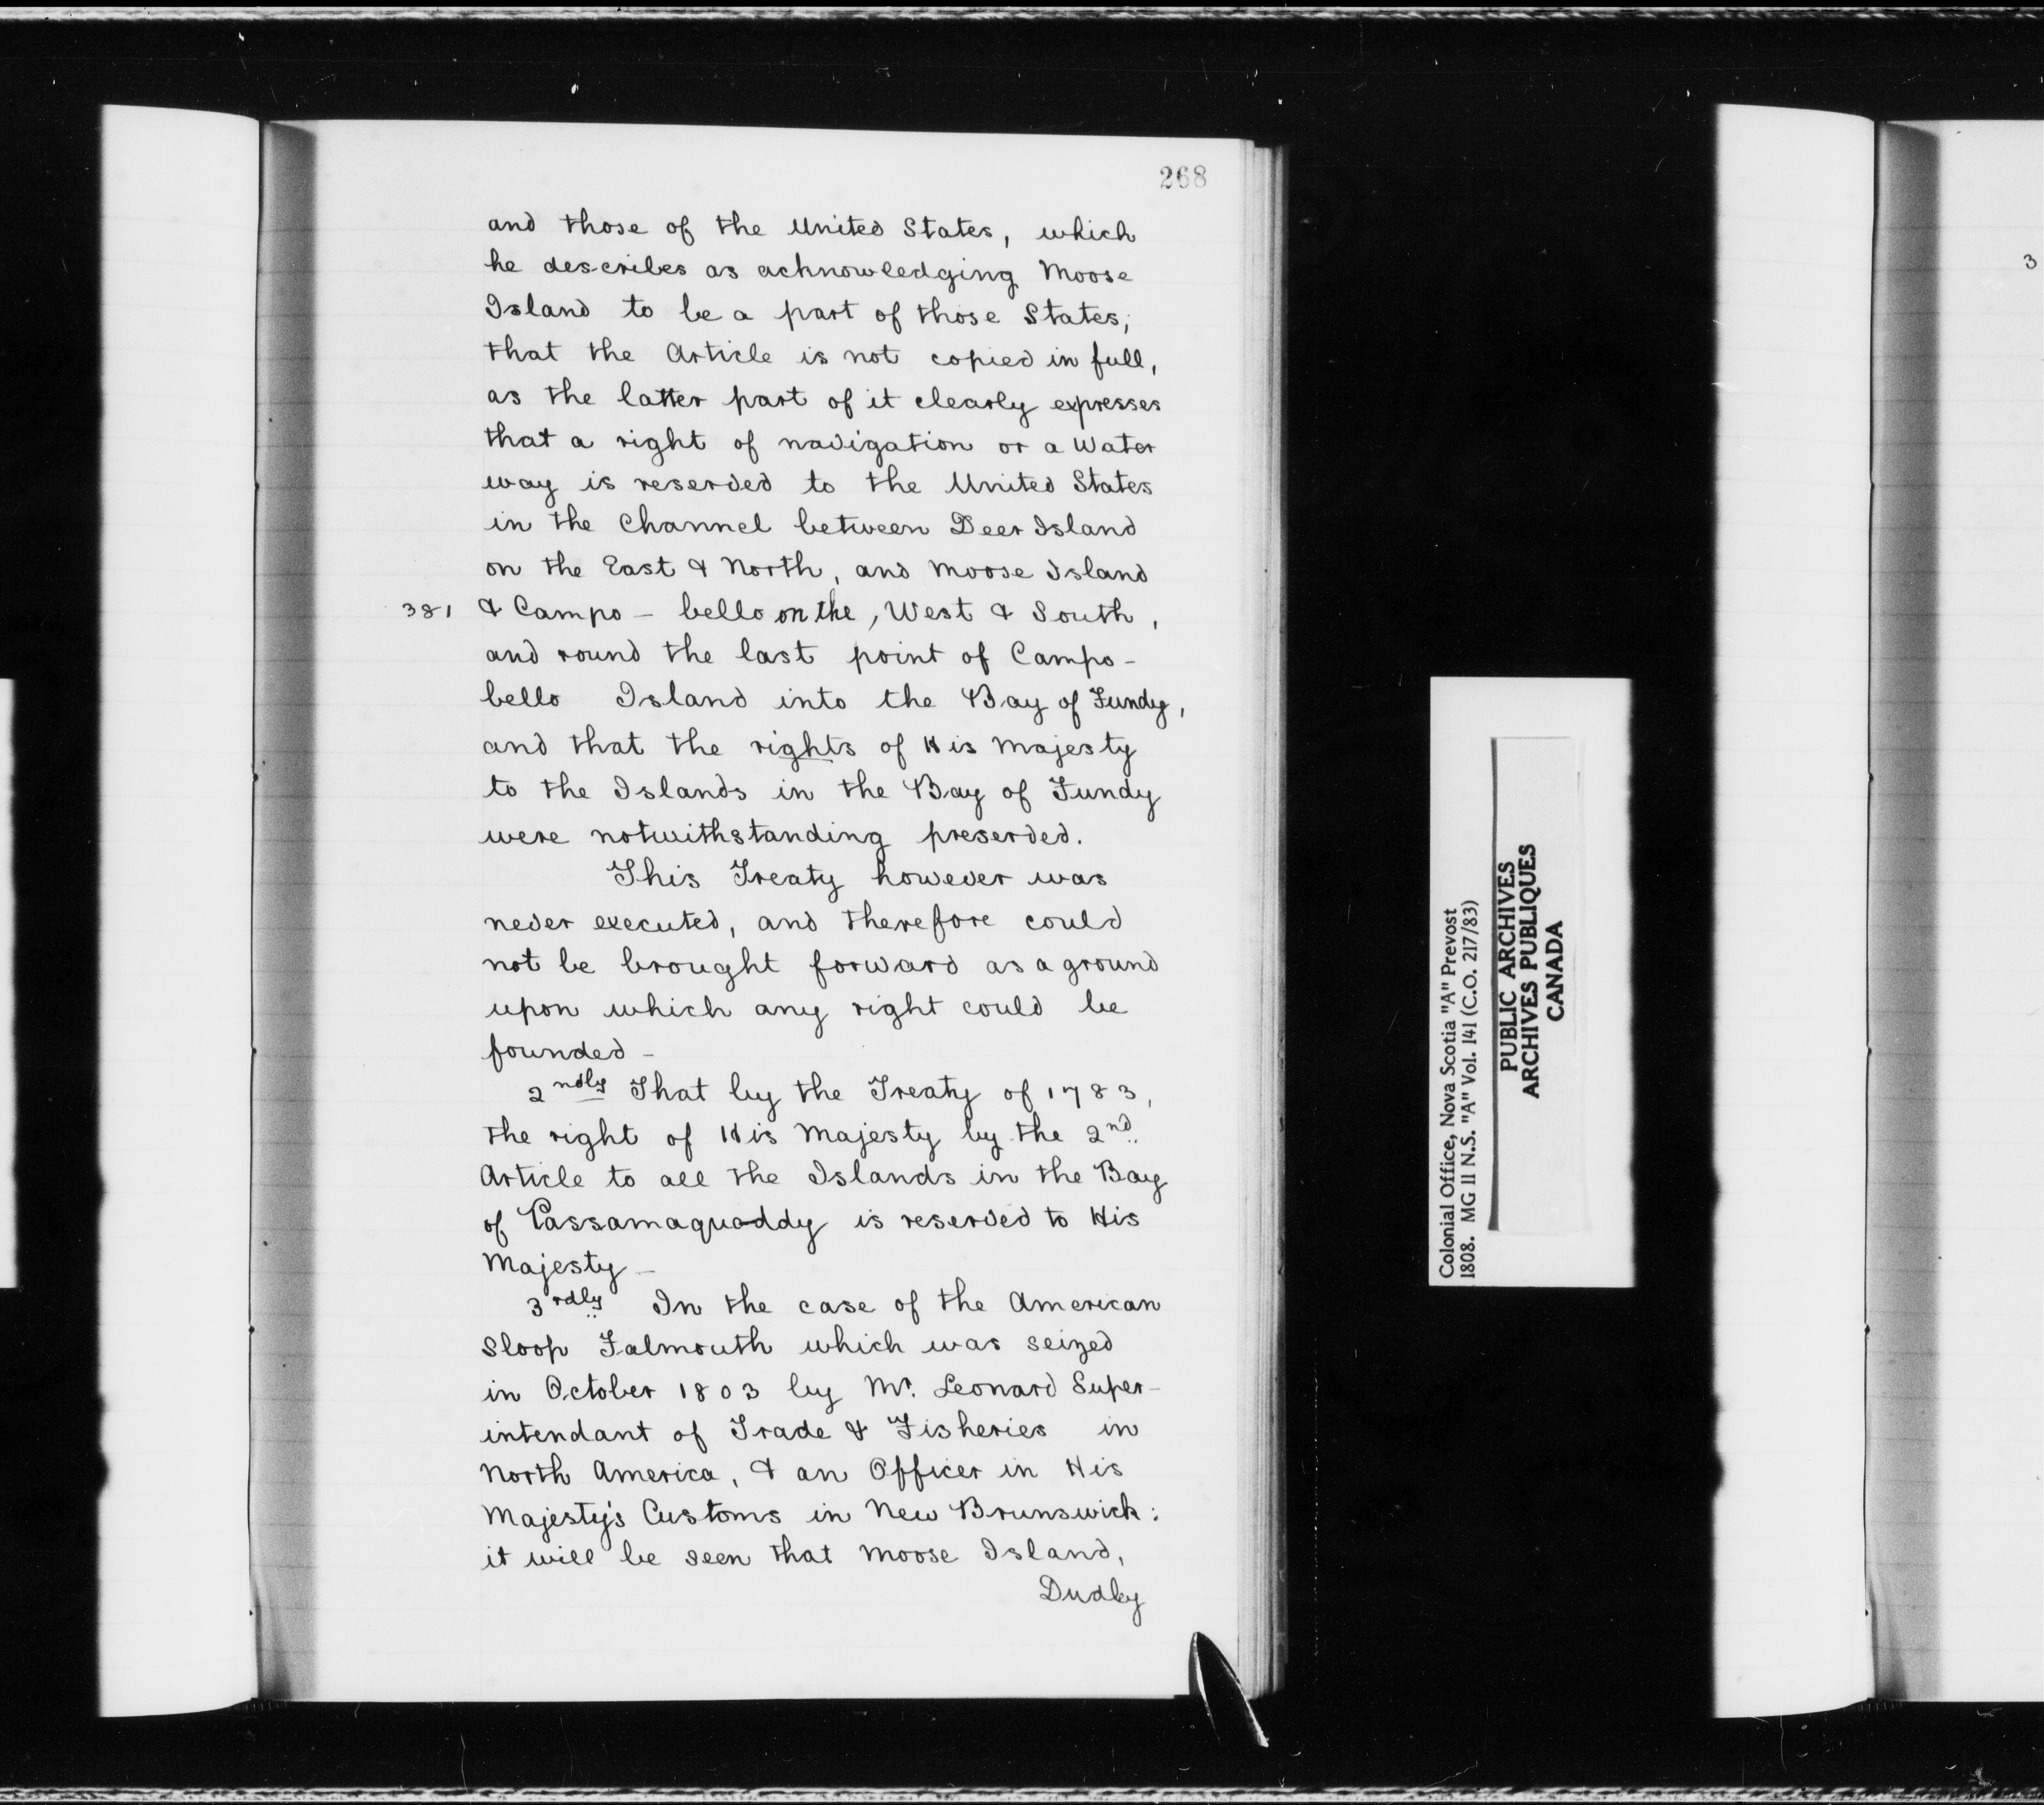 268
and those of the United States, which
he describes as acknowledging Moose
Island to be a part of those States;
that the Article is not copied in full,
as the latter part of it clearly expresses
that a right of navigation or a Water
way is reserved to the United States
in the Channel between Deer Island
on the East & North, and Moose Island
381 & Campo - bello on the, West & South,
and round the last point of Campo-
bello Island into the Bay of Fundy,
and that the rights of His Majesty
to the Islands in the Bay of Fundy
were notwithstanding preserved.
This Treaty however was
never executed, and therefore could
not be brought forward as a ground
upon which any right could be
founded -
2ndly That by the Treaty of 1783,
the right of His Majesty by the 2nd
Article to all the Islands in the Bay
of Passamaquoddy is reserved to His
Majesty -
3rdly In the case of the American
Sloop Falmouth which was seized
in October 1803 by Mr. Leonard Super-
intendant of Trade & Fisheries in
North America, & an Officer in His
Majesty's Customs in New Brunswick:
it will be seen that Moose Island,
Dudley
Colonial Office, Nova Scotia "A" Prevost
1808. MG 11 N.S. "A" Vol. 141 (C.O. 217/83)
PUBLIC ARCHIVES
ARCHIVES PUBLIQUES
CANADA
3